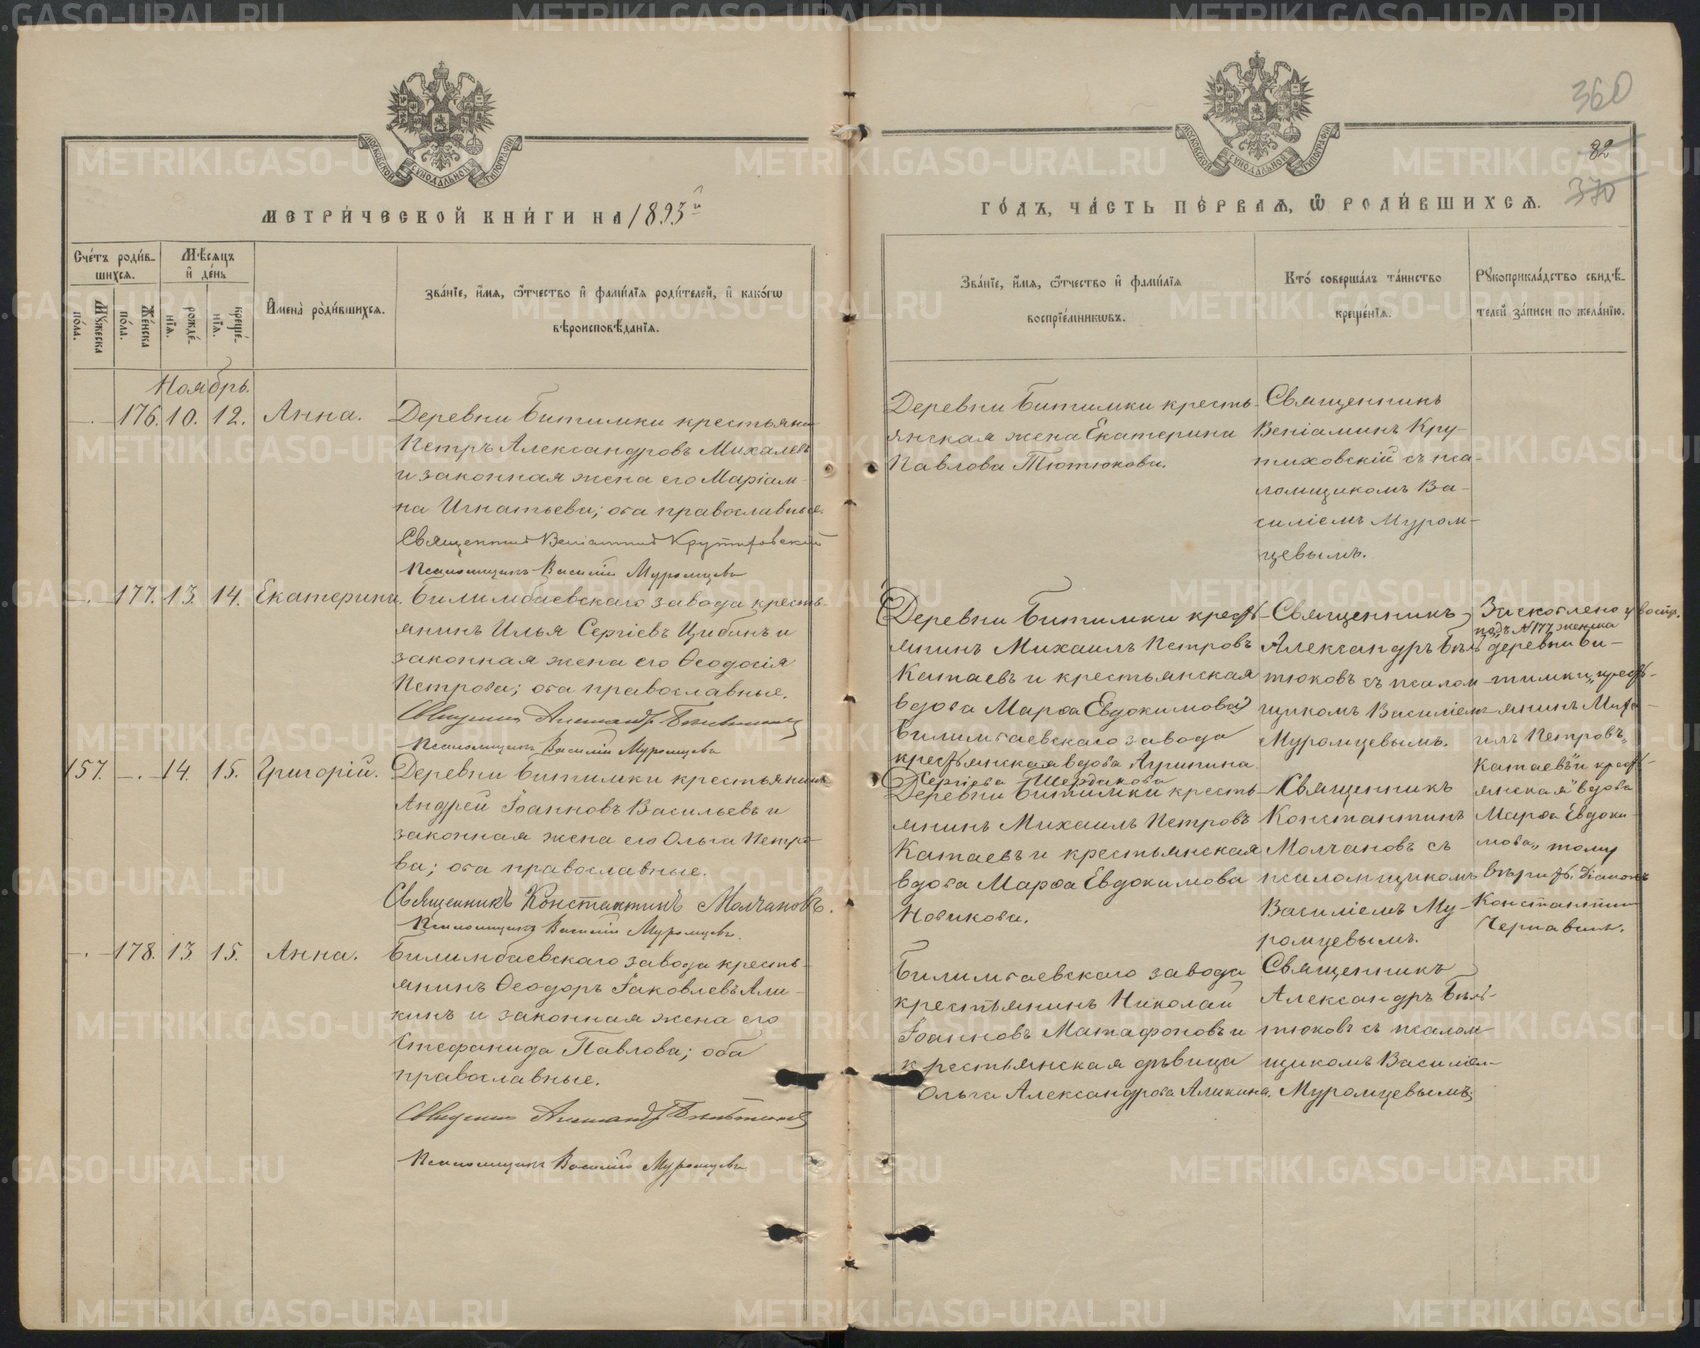 360
82
370
МОСКОВСКОЙ СѴНОДАЛЬНОЙ ТИПОГРАФІИ
МОСКОВСКОЙ СѴНОДАЛЬНОЙ ТИПОГРАФІИ
МЕТРИ́ЧЕСКОЙ КНИ́ГИ НА 1893й
ГО́ДЪ, ЧА́СТЬ ПЕ́РВАѦ, Ѽ РОДИ́ВШИХСѦ.
Сче́тъ роди́в-
шихсѧ.
Мꙋжеска по́ла.
Же́нска по́ла.
Мѣ́сѧцъ
и҆ де́нь
рожде́-нїѧ.
креще́-нїѧ.
И҆мена̀ роди́вшихсѧ.
Зва́нїе, и҆́мѧ, ѻ҆́тчество и҆ фами́лїѧ роди́телей, и҆ како́гѡ
вѣроисповѣ́данїѧ.
Зва́нїе, и҆́мѧ, ѻ҆́тчество и҆ фами́лїѧ
воспрїе́мникѡвъ.
Кто̀ соверша́лъ та́инство
креще́нїѧ.
Рꙋкоприкла́дство свидѣ́-
телей за́писи по жела́нїю.
Ноябрь.
— 176. 10. 12. Анна.
Деревни Битимки крестьянин
Петръ Александровъ Михалевъ
и законная жена его Маріам-
на Игнатьева; оба православные.
Священникъ Веніаминъ Крутиховскій
Псаломщикъ Василій Муромцевъ
Деревни Битимки кресть-
янская жена Екатерина
Павлова Тютюкова.
Священникъ
Веніаминъ Кру-
тиховскій съ пса-
ломщикомъ Ва-
силіемъ Муром-
цевымъ.
— 177. 13. 14. Екатерина.
Билимбаевскаго завода кресть-
янинъ Илья Сергіевъ Цибинъ и
законная жена его Ѳеодосія
Петрова; оба православные.
Священникъ Александръ Бѣлтюковъ
Псаломщикъ Василій Муромцевъ
(Деревни Битимки крест-
янинъ Михаилъ Петровъ
Катаевъ и крестьянская
вдова Марѳа Евдокимова)
Билимбаевскаго завода
крестьянская вдова Агрипина
Сергіева Шердакова
Священникъ
Александръ Бѣл-
тюковъ съ псалом-
щикомъ Василіемъ
Муромцевымъ.
Заскоблено у воспр.
подъ № 177 женска
деревни Би-
тимки „крест-
янинъ Миха-
илъ Петровъ
Катаевъ и крест-
янская вдова
Марѳа Евдоки-
мова„ тому
вѣрить. Діаконъ
Константинъ
Чернавинъ.
157. — 14. 15. Григорій.
Деревни Битимки крестьянинъ
Андрей Іоанновъ Васильевъ и
законная жена его Ольга Петро-
ва; оба православные.
Священникъ Константинъ Молчановъ.
Псаломщикъ Василій Муромцевъ.
Деревни Битимки кресть-
янинъ Михаилъ Петровъ
Катаевъ и крестьянская
вдова Марѳа Евдокимова
Новикова.
Священникъ
Константинъ
Молчановъ съ
псаломщикомъ
Василіемъ Му-
ромцевымъ.
— 178. 13. 15. Анна.
Билимбаевскаго завода кресть-
янинъ Ѳеодоръ Іаковлевъ Али-
кинъ и законная жена его
Стефанида Павлова; оба
православные.
Священникъ Александръ Бѣлтюковъ
Псаломщикъ Василій Муромцевъ
Билимбаевскаго завода
крестьянинъ Николай
Іоанновъ Матафоновъ и
крестьянская дѣвица
Ольга Александрова Аликина.
Священникъ
Александръ Бѣл-
тюковъ съ псалом-
щикомъ Василіем-
Муромцевымъ
METRIKI.GASO-URAL.RU